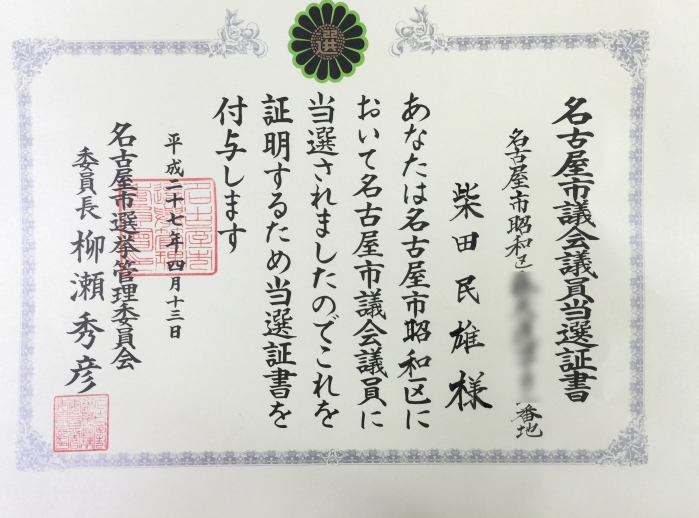 選
名古屋市議会議員当選証書
名古屋市昭和区
番地
柴田民雄様
あなたは名古屋市昭和区に
おいて名古屋市議会議員に
当選されましたのでこれを
証明するため当選証書を
付与します
平成二十七年四月十三日
名古屋市選挙管理委員会
委員長 柳瀬秀彦